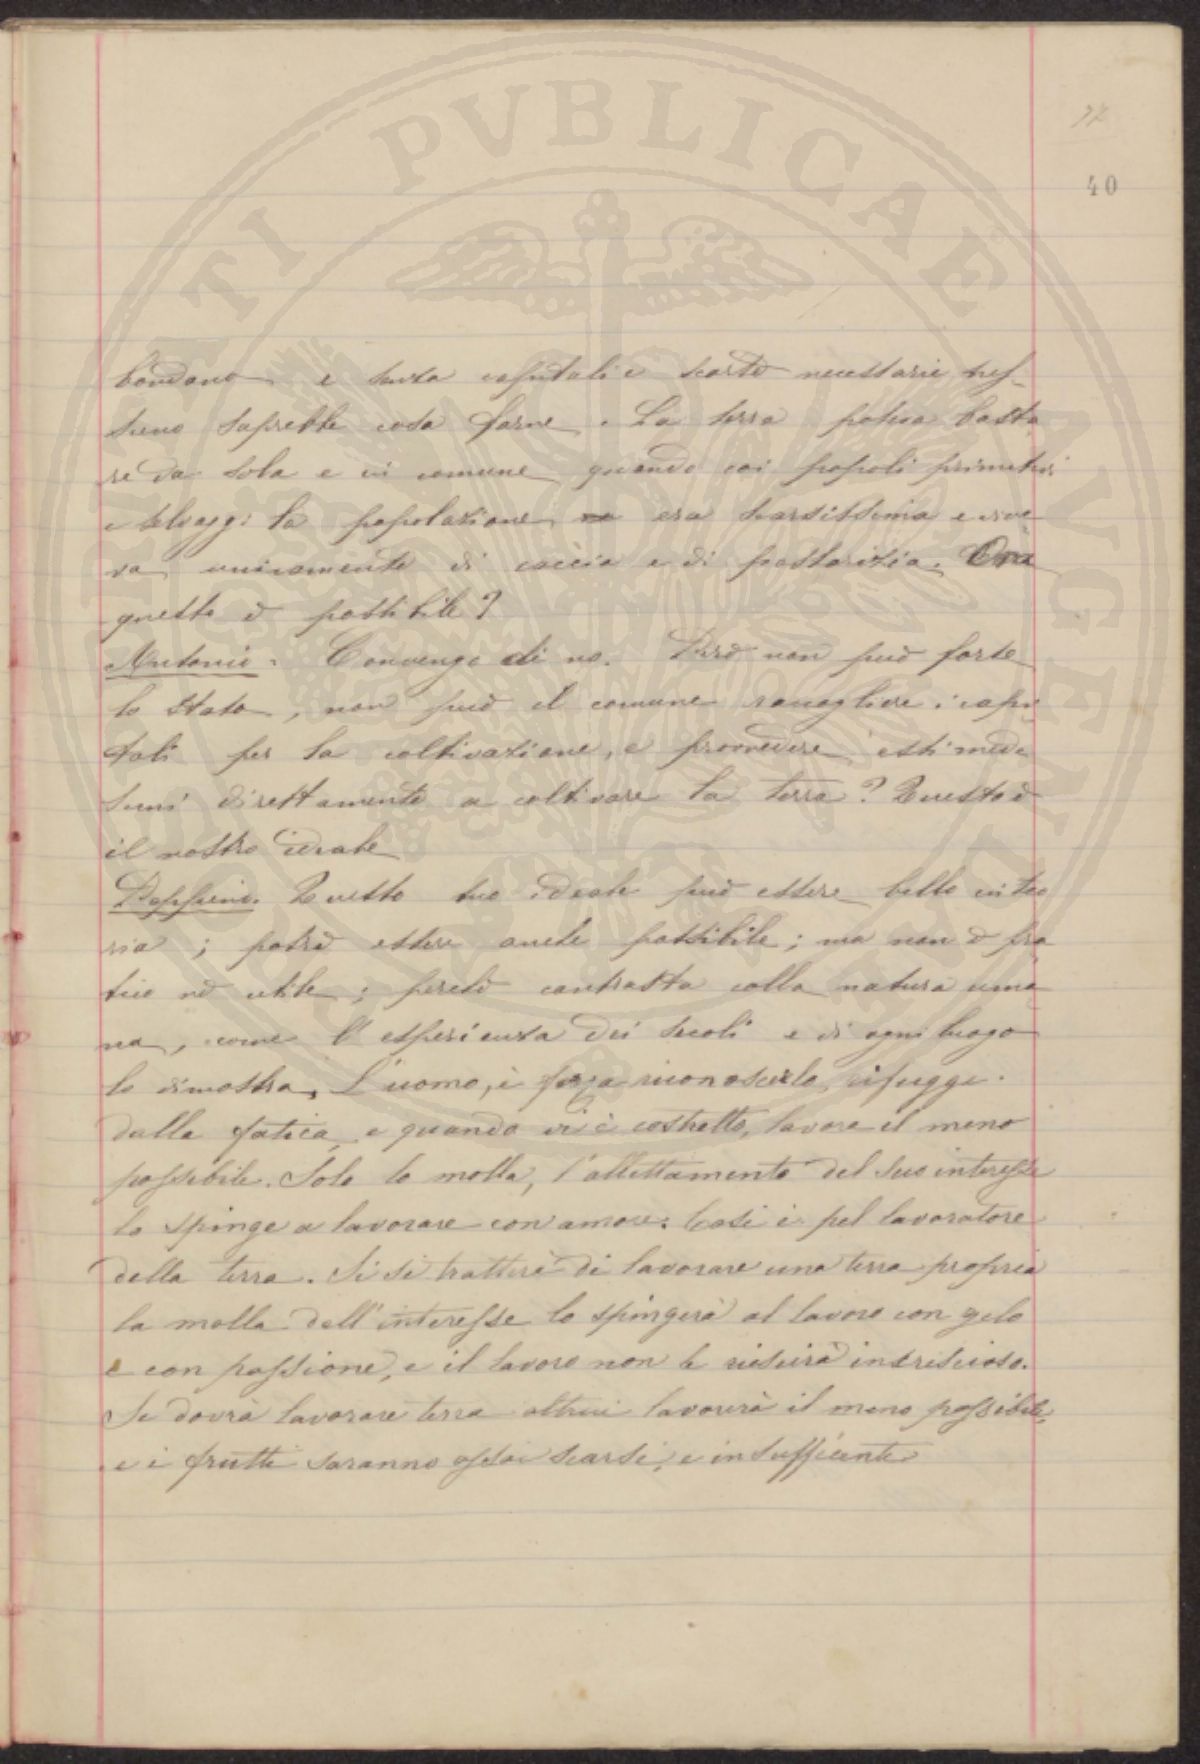 40
bondano e senza capitali e scorte necessarie nes-
suno saprebbe cosa farne. La terra poteva basta
re da sola e in comune quando coi popoli primitivi
e selvaggi la popolazione era scarsissima e vive
va unicamente di caccia e di pastorizia. Ora
questo è possibile?
Antonio. Convengo di no. Però non può forse
lo Stato, non può il comune raccogliere i capi
tali per la coltivazione, e provvedere essi mede
simi direttamente a coltivare la terra? Questo è
il nostro ideale
Peppino. Questo tuo ideale può essere bello in teo
ria; potrà essere anche possibile; ma non è pra
tico nè utile; perchè contrasta colla natura uma
na, come l'esperienza dei secoli e di ogni luogo
lo dimostra. L'uomo, è forza riconoscerlo, rifugge
dalla fatica, e quando vi è costretto, lavora il meno
possibile. Solo la molla, l'allettamento del suo interesse
lo spinge a lavorare con amore. Così è pel lavoratore
della terra. Se si tratterà di lavorare una terra propria
la molla dell'interesse lo spingerà al lavoro con zelo
e con passione, e il lavoro non le riescirà increscioso.
Se dovrà lavorare terra altrui lavorerà il meno possibile,
e i frutti saranno assai scarsi, e insufficienti
SENATI PVBLICAE AVGENDAE